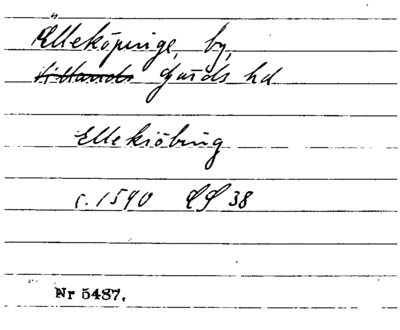 Älleköpinge, by,
Villands Gärds hd
Ellekiöbing
c. 1590 LS 38
Nr 5487.